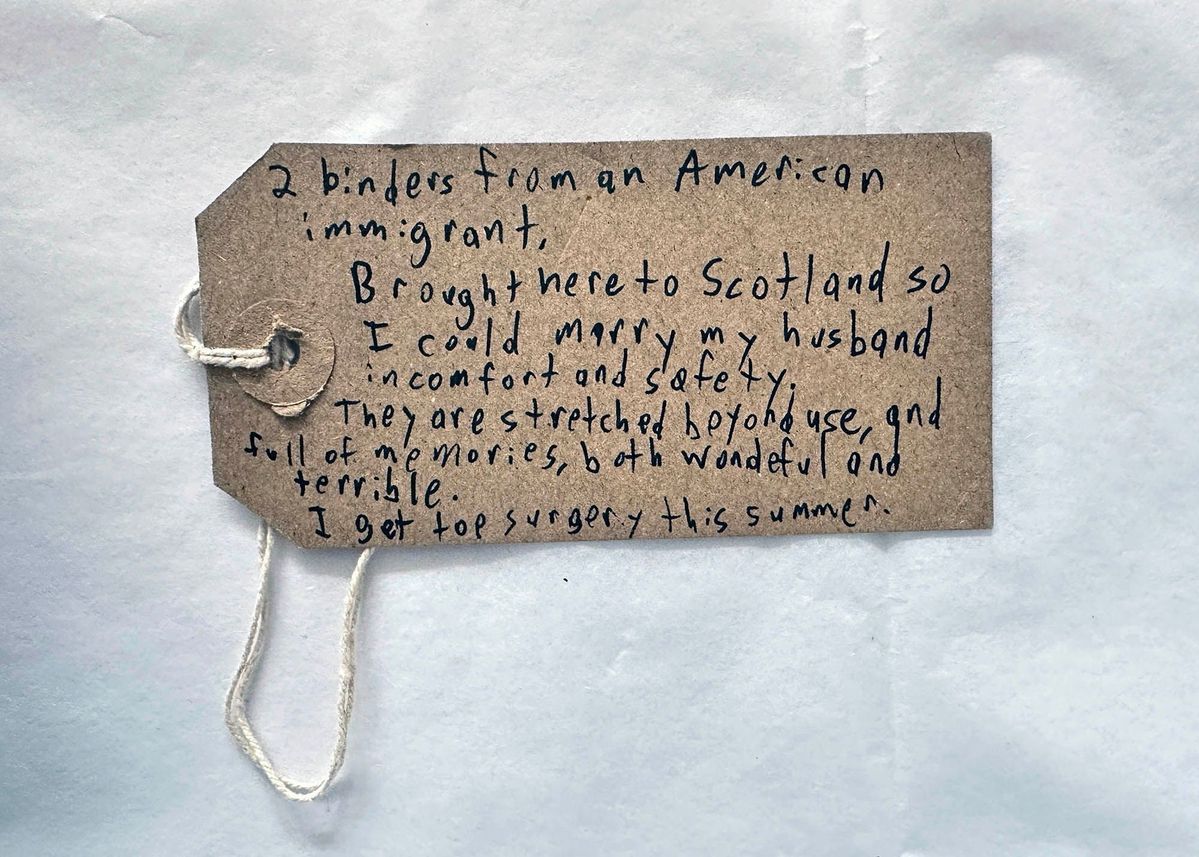 2 binders from an American
immigrant,
Brought here to Scotland so
I could marry my husband
in comfort and safety.
They are stretched beyond use, and
full of memories, both wondeful and
terrible.
I get top surgery this summer.